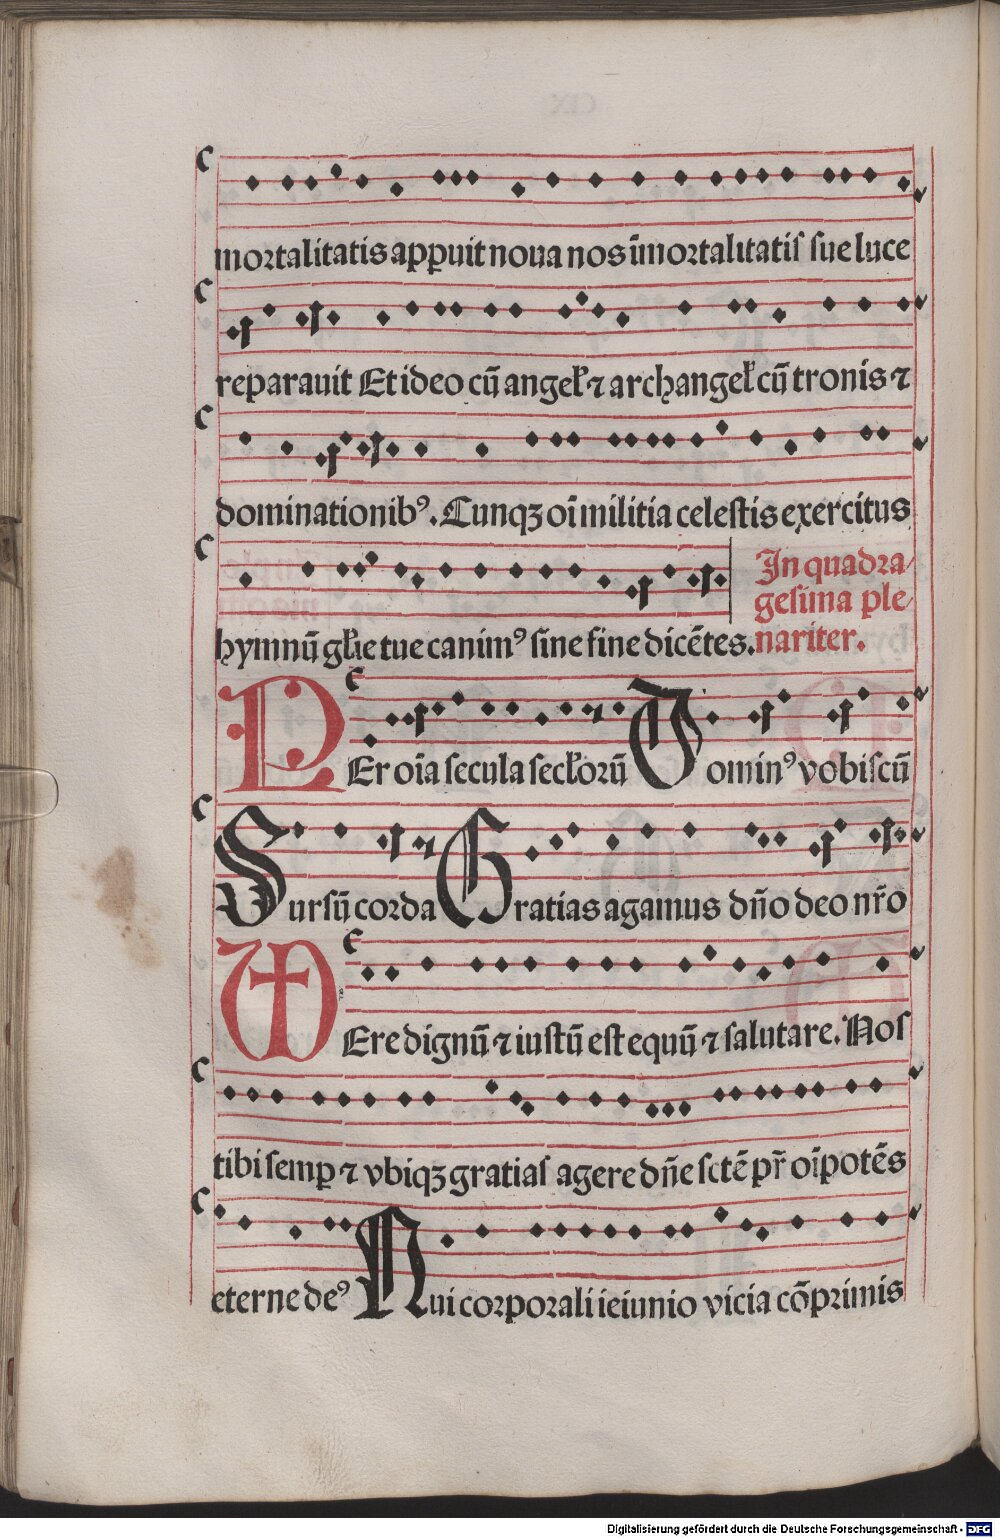 mortalitatis apꝑuit noua nos īmortalitatis sue luce
reparauit Et ideo cū angeł ⁊ archangeł cū tronis ⁊
dominationibꝰ. Cunqꝫ oī militia celestis exercitus
hymnū głie tue canimꝰ sine fine dicētes.
In quadra-
gesima ple-
nariter.
PEr oīa secula secłorū Dominꝰ vobiscū
Sursū corda Gratias agamus dño deo nr̄o
VEre dignū ⁊ iustū est equū ⁊ salutare. Nos
tibi semꝑ ⁊ vbiqꝫ gratias agere dñe sctē pr̄ oīpotēs
eterne deꝰ Qui corporali ieiunio vicia cōprimis
Digitalisierung gefördert durch die Deutsche Forschungsgemeinschaft - DFG